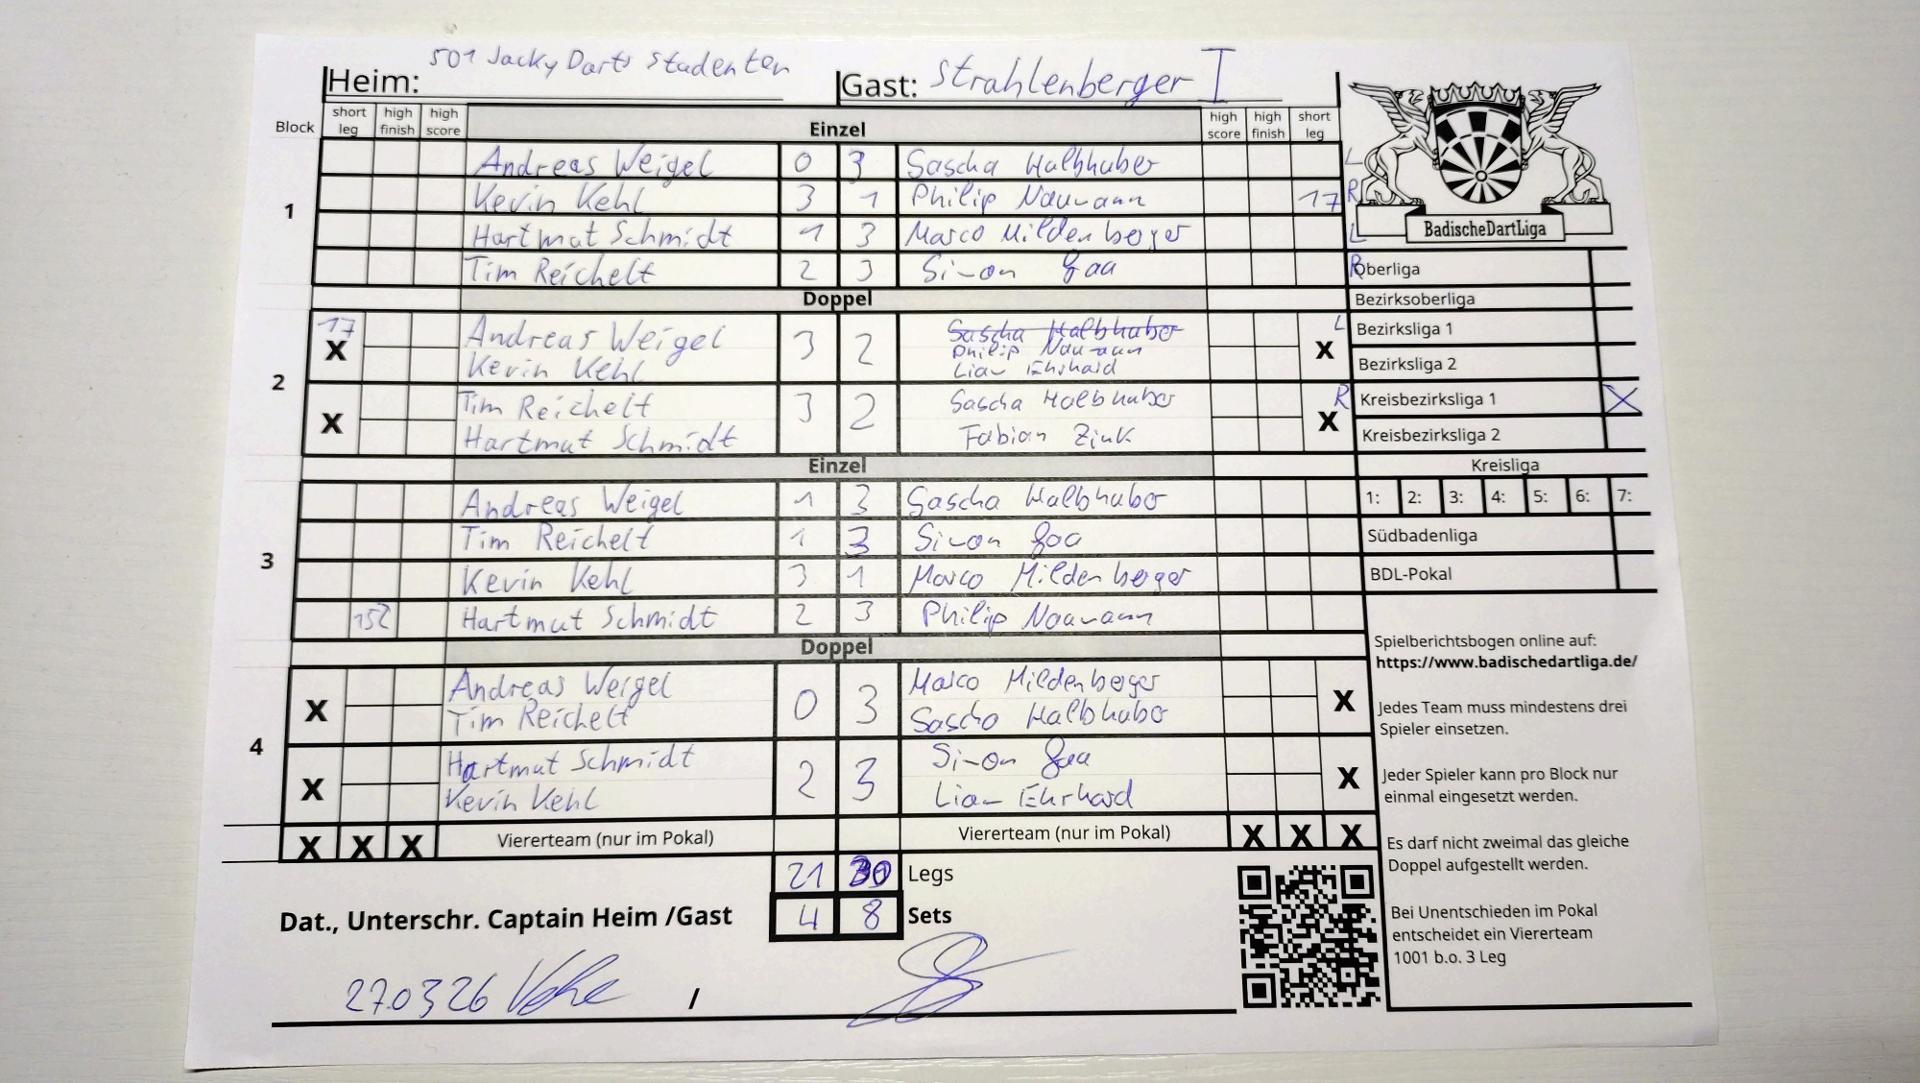 Heim: 501 Jacky Darts Studenten Gast: Strahlenberger I
Block short leg high finish high score Einzel high score high finish short leg
1
Andreas Weigel 0 3 Sascha Halbhuber L
Kevin Kehl 3 1 Philip Naumann 17 R
Hartmut Schmidt 1 3 Marco Mildenberger L
Tim Reichelt 2 3 Simon Gaa R
Doppel
2
17 X Andreas Weigel Kevin Kehl 3 2 Sascha Halbhuber Philip Naumann Liam Ehrhard X L
X Tim Reichelt Hartmut Schmidt 3 2 Sascha Halbhuber Fabian Zink X R
Einzel
3
Andreas Weigel 1 3 Sascha Halbhuber
Tim Reichelt 1 3 Simon Gaa
Kevin Kehl 3 1 Marco Mildenberger
152 Hartmut Schmidt 2 3 Philip Naumann
Doppel
4
X Andreas Weigel Tim Reichelt 0 3 Marco Mildenberger Sascha Halbhuber X
X Hartmut Schmidt Kevin Kehl 2 3 Simon Gaa Liam Ehrhard X
X X X Viererteam (nur im Pokal) Viererteam (nur im Pokal) X X X
21 30 Legs
Dat., Unterschr. Captain Heim /Gast 4 8 Sets
27.03.26 /
BadischeDartLiga
Oberliga
Bezirksoberliga
Bezirksliga 1
Bezirksliga 2
Kreisbezirksliga 1 X
Kreisbezirksliga 2
Kreisliga
1: 2: 3: 4: 5: 6: 7:
Südbadenliga
BDL-Pokal
Spielberichtsbogen online auf:
https://www.badischedartliga.de/
Jedes Team muss mindestens drei
Spieler einsetzen.
Jeder Spieler kann pro Block nur
einmal eingesetzt werden.
Es darf nicht zweimal das gleiche
Doppel aufgestellt werden.
Bei Unentschieden im Pokal
entscheidet ein Viererteam
1001 b.o. 3 Leg